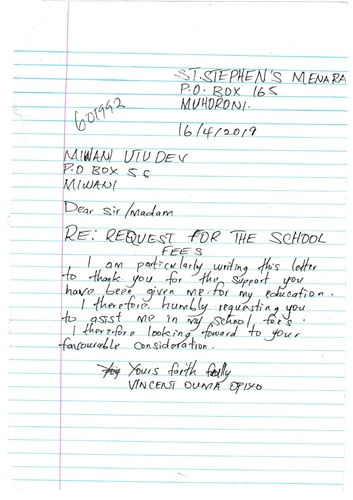 ST. STEPHEN'S MENARA
P.O. BOX 165
MUHORONI.
601992
16/4/2019
MIWANI UTU DEV
P.O BOX 56
MIWANI
Dear Sir/Madam
RE: REQUEST FOR THE SCHOOL
FEES
I am particularly writing this letter
to thank you for the support you
have been given me for my education.
I therefore humbly requesting you
to asist me in my school fees.
I therefore looking foward to your
favourable consideration.
Yours faith fully
VINCENT OUMA OPIYO